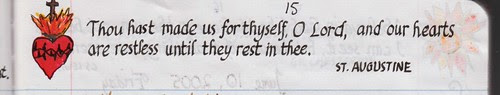 15
Thou hast made us for thyself, O Lord, and our hearts
are restless until they rest in thee.
ST. AUGUSTINE
t.
June 10, 2005 Friday